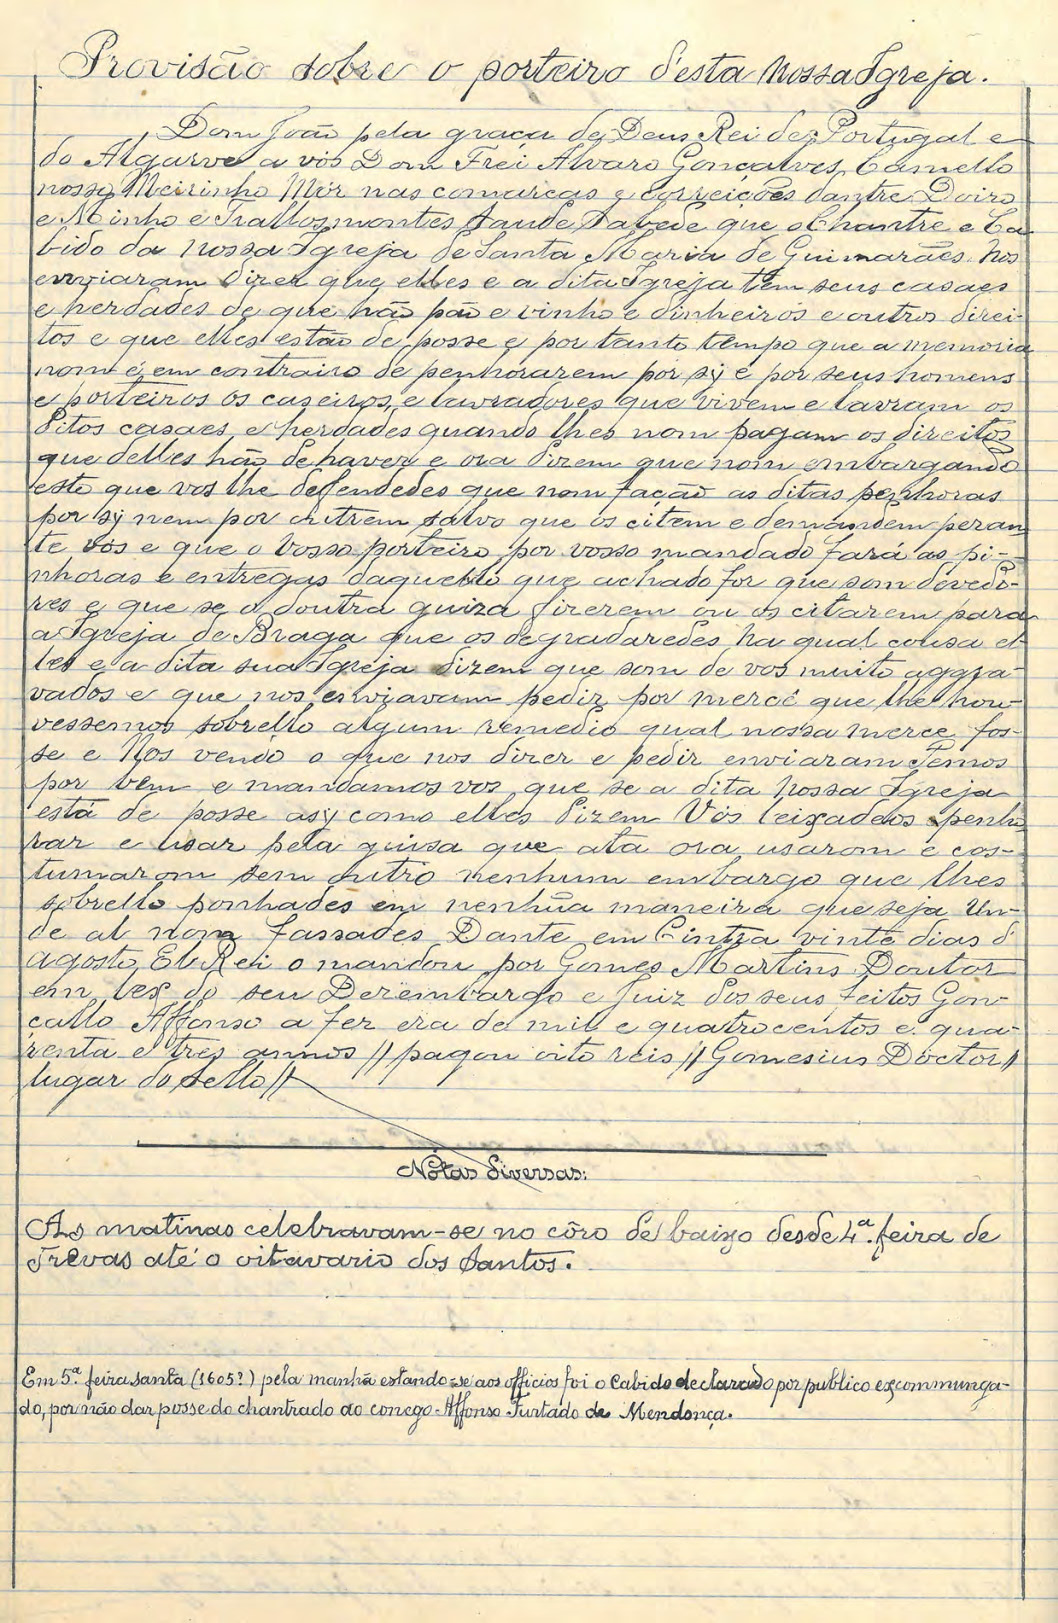 Provisão sobre o porteiro d'esta Nossa Igreja.
Dom João pela graça de Deus Rei de Portugal e
do Algarve a vós Dom Frei Alvaro Gonçalves Camello
nosso Meirinho Mór nas comarcas e correições dantre Doiro
e Minho e Trallosmontes saude Sabede que o Chantre e Ca-
bido da Nossa Igreja de Santa Maria de Guimarães Nos
enviaram dizer que elles e a dita Igreja têm seus casaes
e herdades de que hão pão e vinho e dinheiros e outros direi-
tos e que elles estão de posse e por tanto tempo que a memoria
nom é em contrairo de penhorarem por sÿ e por seus homens
e porteiros os caseiros e lavradores que vivem e lavram os
ditos casaes e herdades quando lhes nom pagam os direitos
que delles hão de haver e ora dizem que nom embargando
esto que vos lhe defendedes que nom facão as ditas penhoras
por sÿ nem por outrem salvo que os citem e demandem peran
te vós e que o vosso porteiro por vosso mandado fará as pi-
nhoras e entregas daquello que achado for que som devedo-
res e que se o doutra guiza fizerem ou os citarem para
a Igreja de Braga que os degradaredes na qual cousa el-
les e a dita sua Igreja dizem que som de vos muito aggra-
vados e que nos enviavam pedir por mercê que lhe hou-
vessemos sobrello algum remedio qual nossa merce fos-
se e Nos vendo o que nos dizer e pedir enviaram Temos
por bem e mandamos vos que se a dita Nossa Igreja
está de posse asy como elles dizem Vós leixadeos penho
rar e usar pela guisa que atá ora usarom e cos-
tumarom sem outro nenhum embargo que lhes
sobrello ponhades em nenhũa maneira que seja Un-
de al nom fassades Dante em Cintra vinte dias d'
Agosto El Rei o mandou por Gomes Martins Doutor
em leis do seu Dezembargo e Juiz dos seus feitos Gon-
çallo Affonso a fez era de mil e quatrocentos e qua-
renta e tres annos // pagou oito reis // Gomesius Doctor //
lugar do sello //
Nótas diversas:
As matinas celebravam-se no côro de baixo desde 4.ª feira de
Trevas até o oitavario dos Santos.
Em 5.ª feira santa (1605?) pela manhã estando-se aos officios foi o Cabido declarado por publico excommunga-
do, por não dar posse do chantrado ao conego Affonso Furtado de Mendonça.